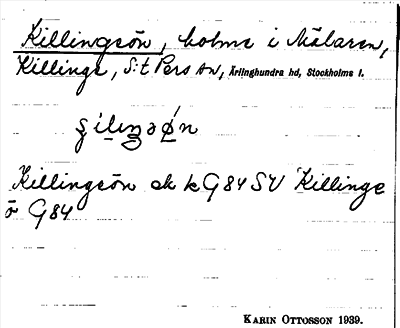 Killingeön, holme i Mälaren,
Killinge, S:t Pers sn, Ärlinghundra hd, Stockholms l.
Killingeön ek k G84 SV Killinge
ö G84
KARIN OTTOSSON 1939.